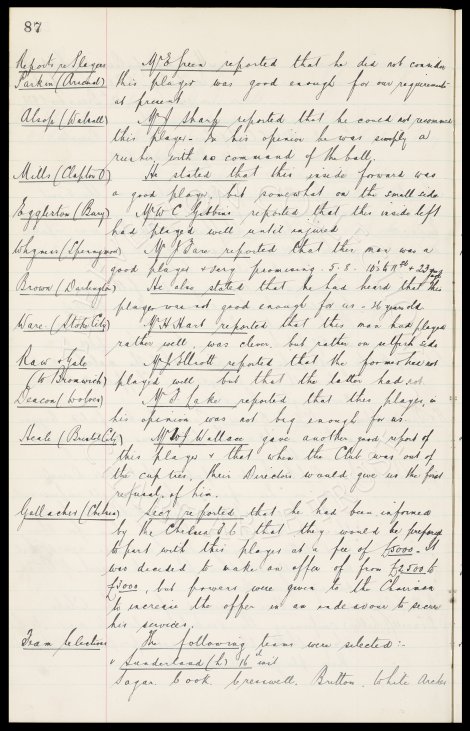 87
Reports re Players Mr E Green reported that he did not consider
Parkin (Arsenal) this player was good enough for our requirements
at present.
Alsop (Walsall) Mr J Sharp reported that he could not recommend
this player - In his opinion he was simply a
rusher with no command of the ball.
Mills (Clapton O) He stated that this inside forward was
a good player, but somewhat on the small side
Eggleston (Bury) Mr W C Gibbins reported that this inside left
had played well until injured
(Spennymoor) Mr J Fare reported that this man was a
good player & very promising - 5-8 - & 23 yrs
Brown (Darlington) He also stated that he had heard that this
player was not good enough for us - 26 years old
Ware (Stoke City) Mr H Hart reported that this man had played
rather well, was clever, but rather on selfish side
Raw & Gale Mr J Elliott reported that the former had not
(W Bromwich) played well, but that the latter had not.
Deacon (Wolves) Mr T Cake reported that this player, in
his opinion was not big enough for us.
Neale (Bristol City) Mr W J Wallace gave another good report of
this player & that when the Club was out of
the cup ties, their Directors would give us the first
refusal of him.
Gallacher (Chelsea) Secy reported that he had been informed
by the Chelsea F C that they would be prepared
to part with this player at a fee of £5000 - It
was decided to make an offer of from £2500 to
£3000, but powers were given to the Chairman
to increase the offer in an endeavour to secure
his services.
Team Selections The following teams were selected:-
v Sunderland (h) 16th inst
Sagar. Cook. Cresswell. Britton. White Archer